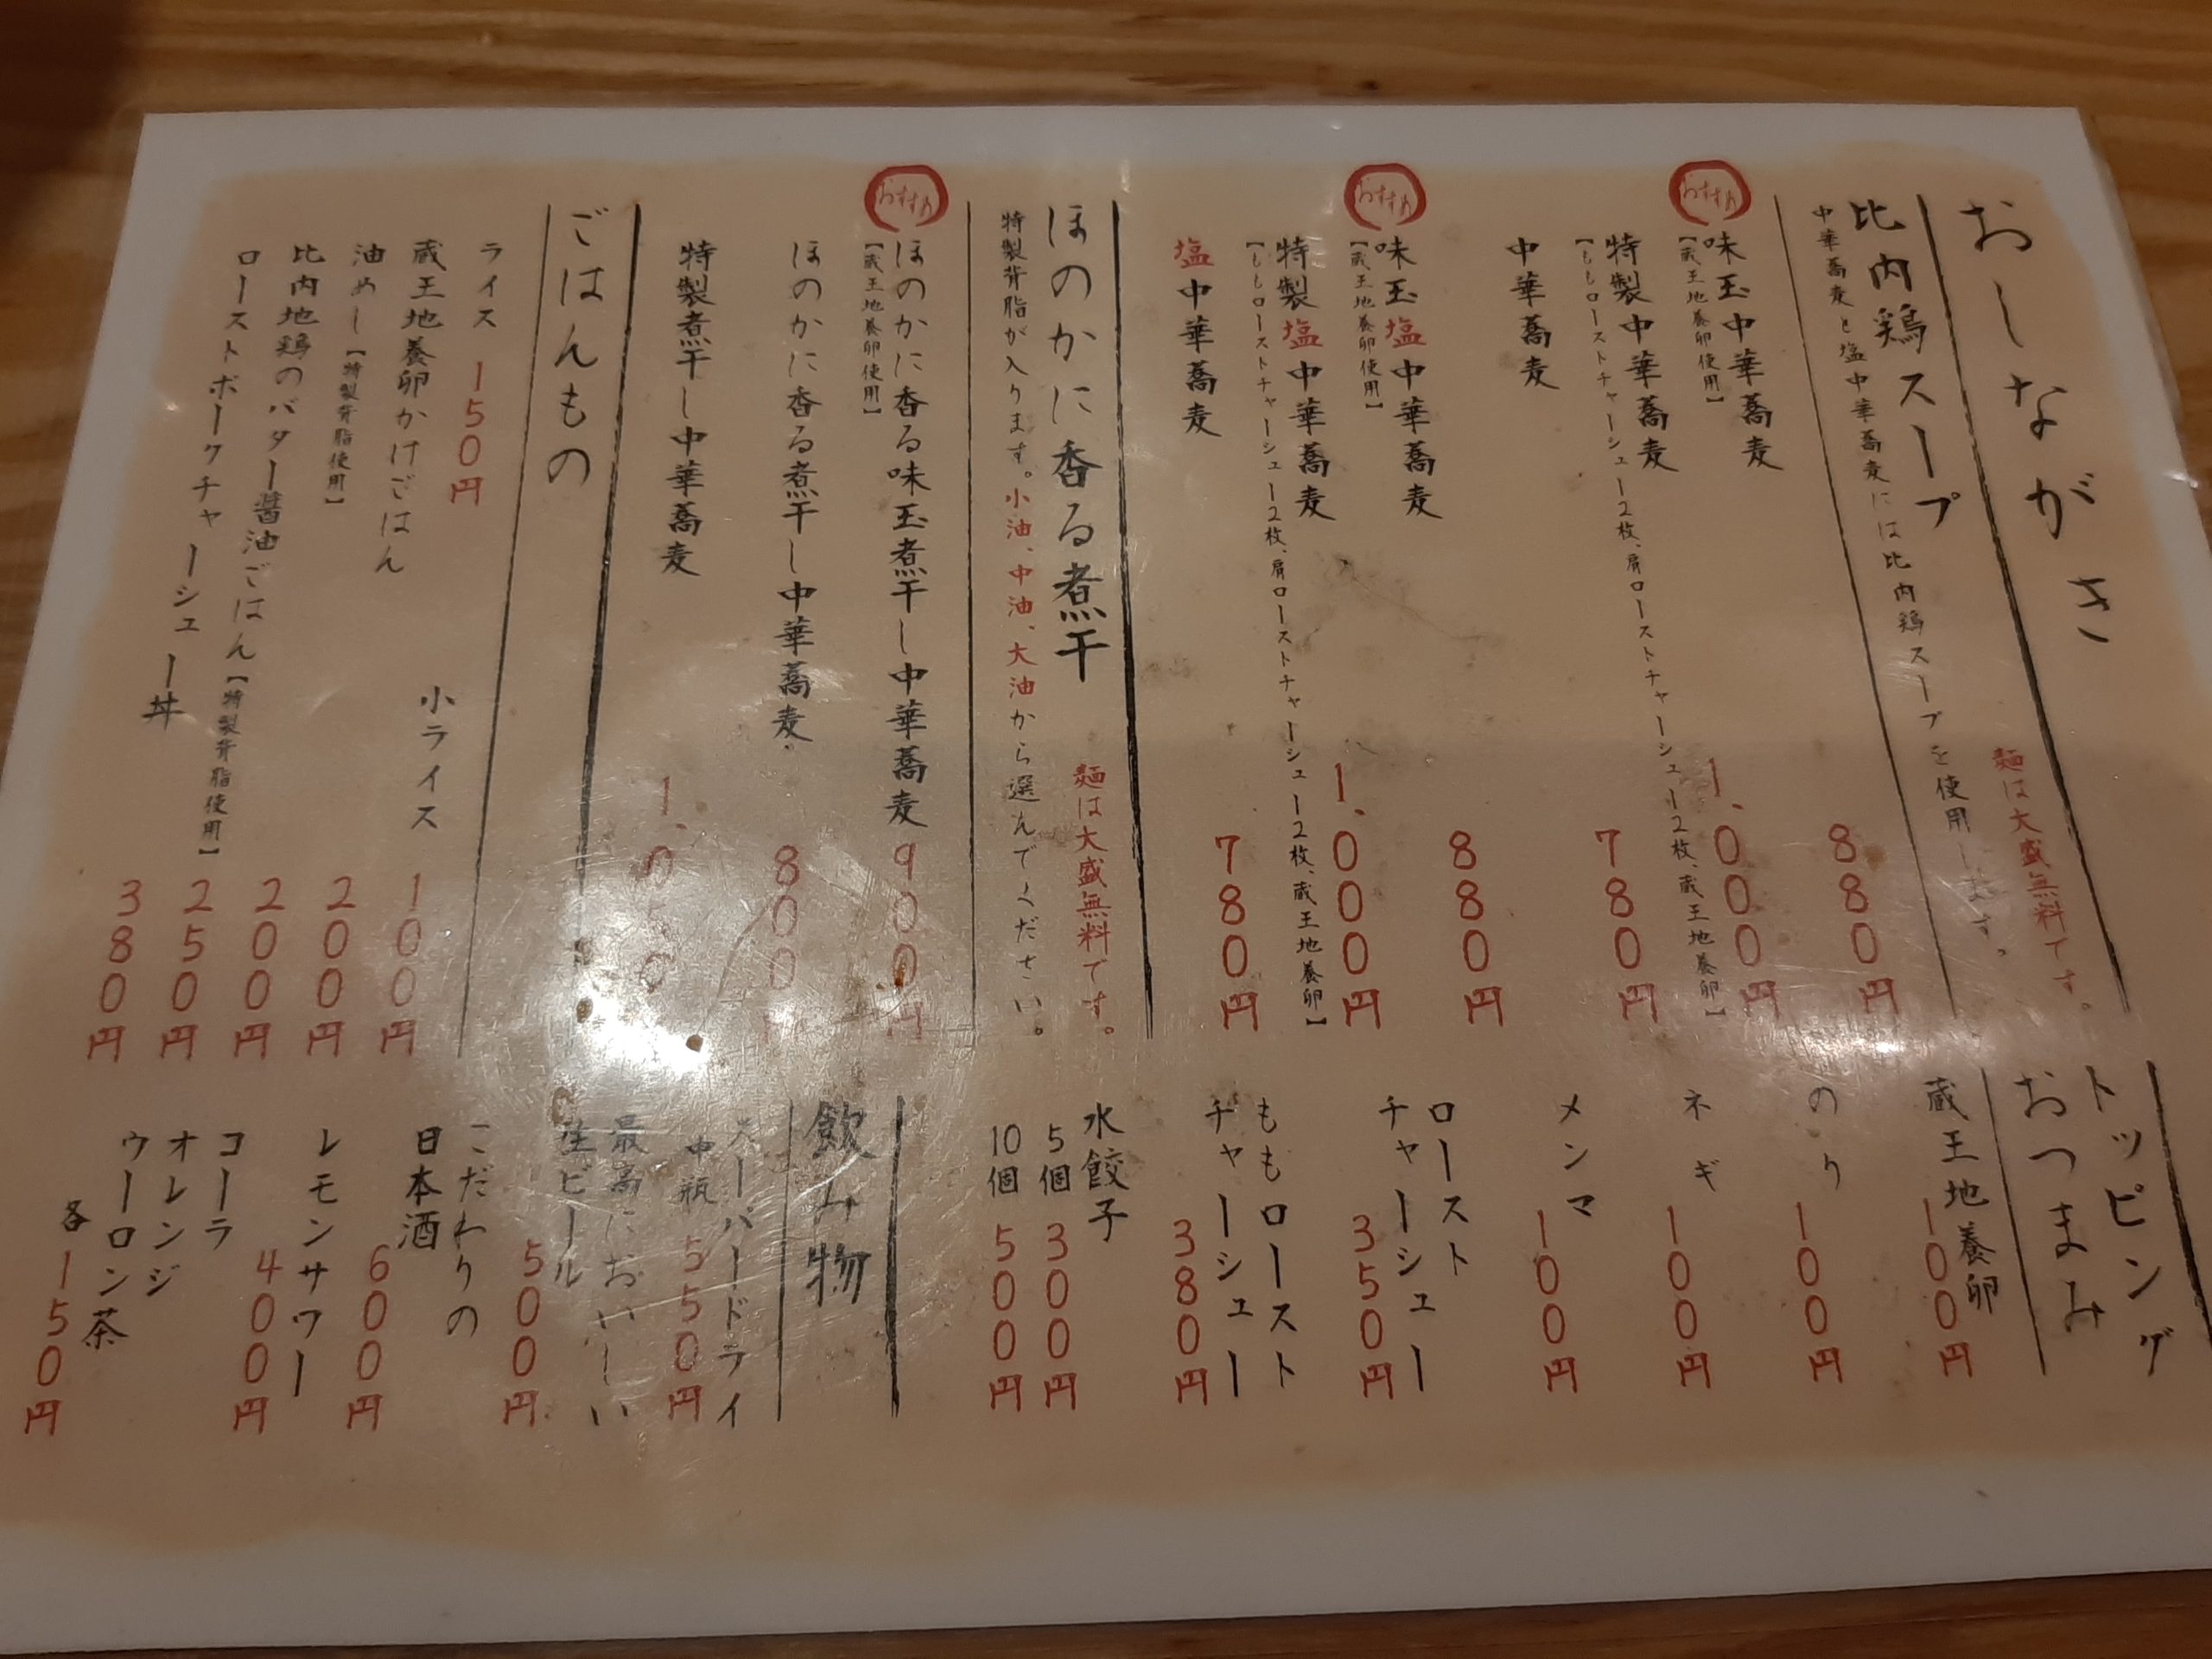 おしながき
麺は大盛無料です。
比内鶏スープ
中華蕎麦と塩中華蕎麦には比内鶏スープを使用します。
おすすめ
味玉中華蕎麦 880円
【蔵王地養卵使用】
特製中華蕎麦 1,000円
【ももローストチャーシュー2枚、肩ローストチャーシュー2枚、蔵王地養卵】
中華蕎麦 780円
おすすめ
味玉塩中華蕎麦 880円
【蔵王地養卵使用】
特製塩中華蕎麦 1,000円
【ももローストチャーシュー2枚、肩ローストチャーシュー2枚、蔵王地養卵】
塩中華蕎麦 780円
麺は大盛無料です。
ほのかに香る煮干
特製背脂が入ります。小油、中油、大油から選んでください。
おすすめ
ほのかに香る味玉煮干し中華蕎麦 900円
【蔵王地養卵使用】
ほのかに香る煮干し中華蕎麦 800
特製煮干し中華蕎麦 1,050
ごはんもの
ライス 150円
小ライス 100円
蔵王地養卵かけごはん 200円
油めし【特製背脂使用】 200円
比内地鶏のバター醤油ごはん【特製背脂使用】 250円
ローストポークチャーシュー丼 380円
トッピング
おつまみ
蔵王地養卵 100円
のり 100円
ネギ 100円
メンマ 100円
ロースト
チャーシュー 350円
ももロースト
チャーシュー 380円
水餃子
5個 300円
10個 500円
飲み物
スーパードライ
中瓶 550円
最高においしい
生ビール 500円
こだわりの
日本酒 600円
レモンサワー 400円
コーラ
オレンジ
ウーロン茶
各150円